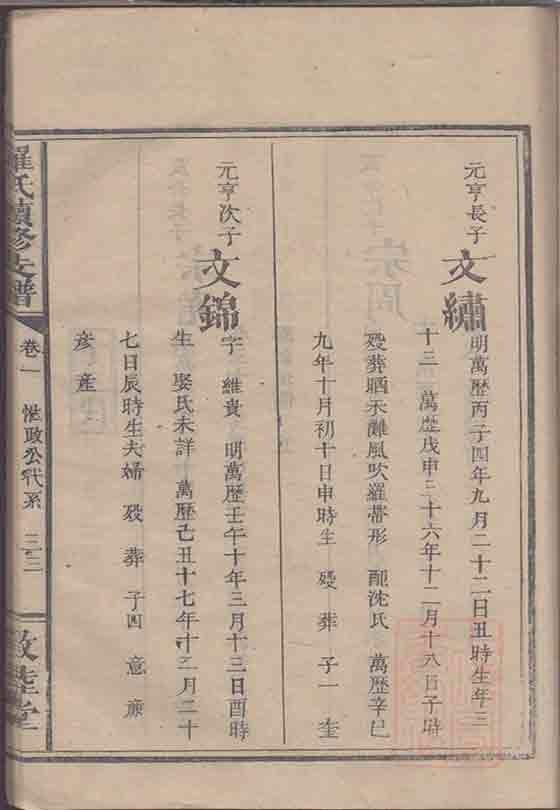 元亨長子
文繡
明萬歷丙子四年九月二十二日丑時生年三
十三 萬歷戊申三十六年十二月十八日子時
歿葬晒禾灘風吹羅帶形 配沈氏 萬歷辛巳
九年十月初十日申時生 歿 葬 子一 奎
元亨次子
文錦
字 維貴 明萬歷壬午十年三月十三日酉時
生 娶氏未詳 萬歷己丑十七年十二月二十
七日辰時生夫婦 歿 葬 子四 意 廉
彥 産
羅氏續修支譜
卷一
惟政公代系
三三
敦陸堂